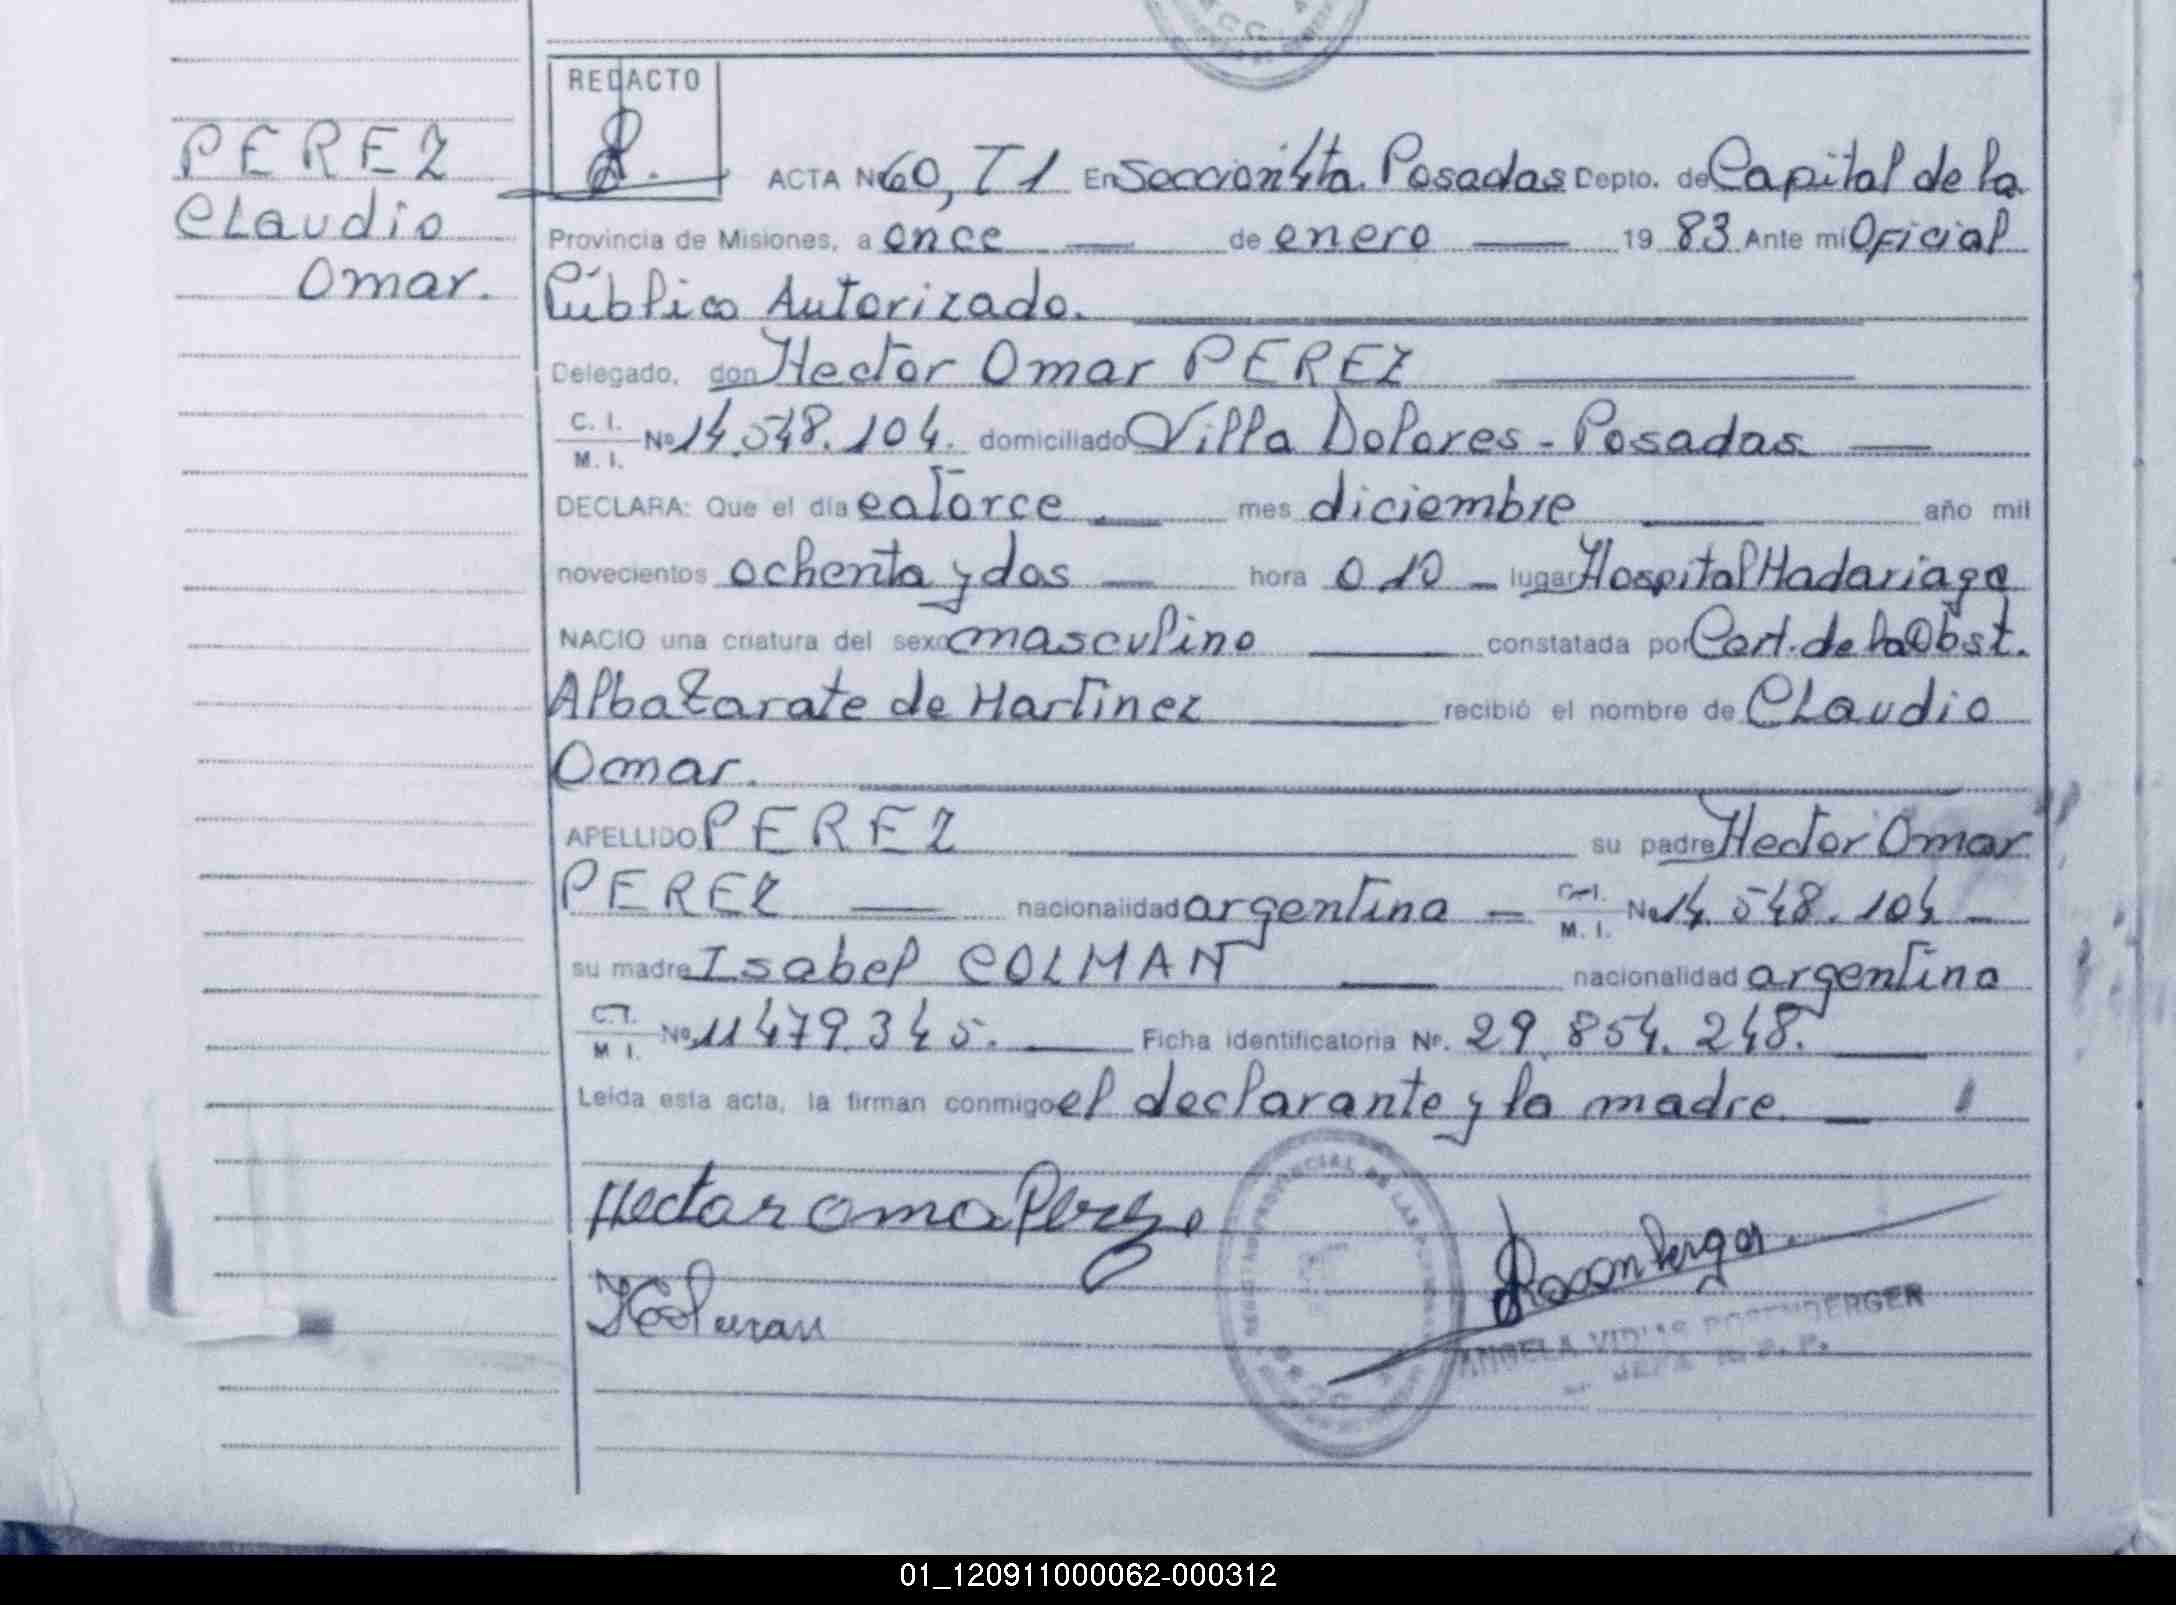 REDACTO
PEREZ
Claudio
Omar.
ACTA Nº 60, T1 En Sección 4ta. Posadas Depto. de Capital de la
Provincia de Misiones, a once de enero 19 83 Ante mi Oficial
Público Autorizado.
Delegado, don Hector Omar PEREZ
C. I.
M. I. Nº 14.548.104. domiciliado Villa Dolores - Posadas
DECLARA: Que el día catorce mes diciembre año mil
novecientos ochenta y dos hora 0 10 lugar Hospital Madariaga
NACIO una criatura del sexo masculino constatada por Cert. de la Obst.
Alba Zarate de Martinez recibió el nombre de Claudio
Omar.
APELLIDO PEREZ su padre Hector Omar
PEREZ nacionalidad argentina C.I.
M. I. Nº 14.548.104
su madre Isabel COLMAN nacionalidad argentina
C.I.
M I. Nº 11479.345. Ficha identificatoria Nº. 29.854.248.
Leída esta acta, la firman conmigo el declarante y la madre
Hector Oma Perez
I Colman
ANGELA ROSENBERGER
JEFA
01_120911000062-000312